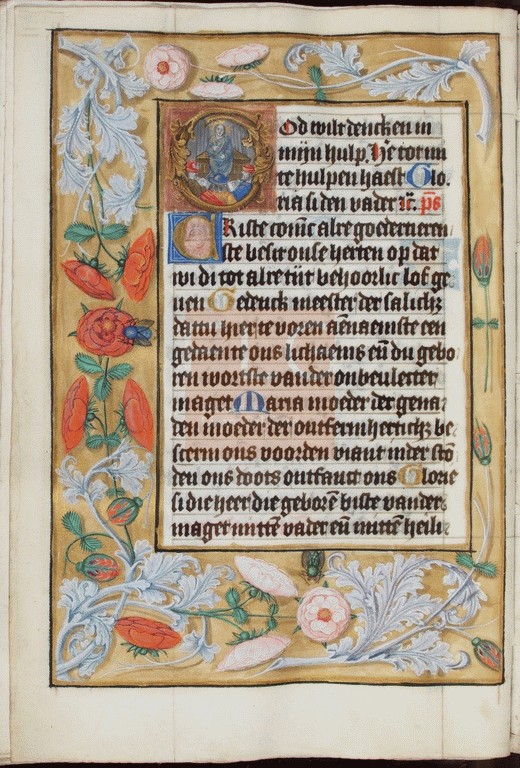 God wilt dencken in
mijn hulp. He̅ tot mi
te hulpen haest Glo.
ria si den vader ꝛc̅. p̅s
Kriste come alre goedertieren
ste besit onse herten op dat
wi di tot alre tijt behoorlic lof ge
uen Gedenck meester der salich;
dattu hier te voren aēnaemste een
gedaente ons lichaems en̅ du gebo
ren wortste vander onbeulecter
maget Maria moeder der gena
den moeder der ontfermhertich; be
scerm ons voorden viant inder sto̅
den ons doots ontfanst ons Glorie
si die heer die gebore̅ biste vander
maget mitte̅ vader eu̅ mitte̅ heili